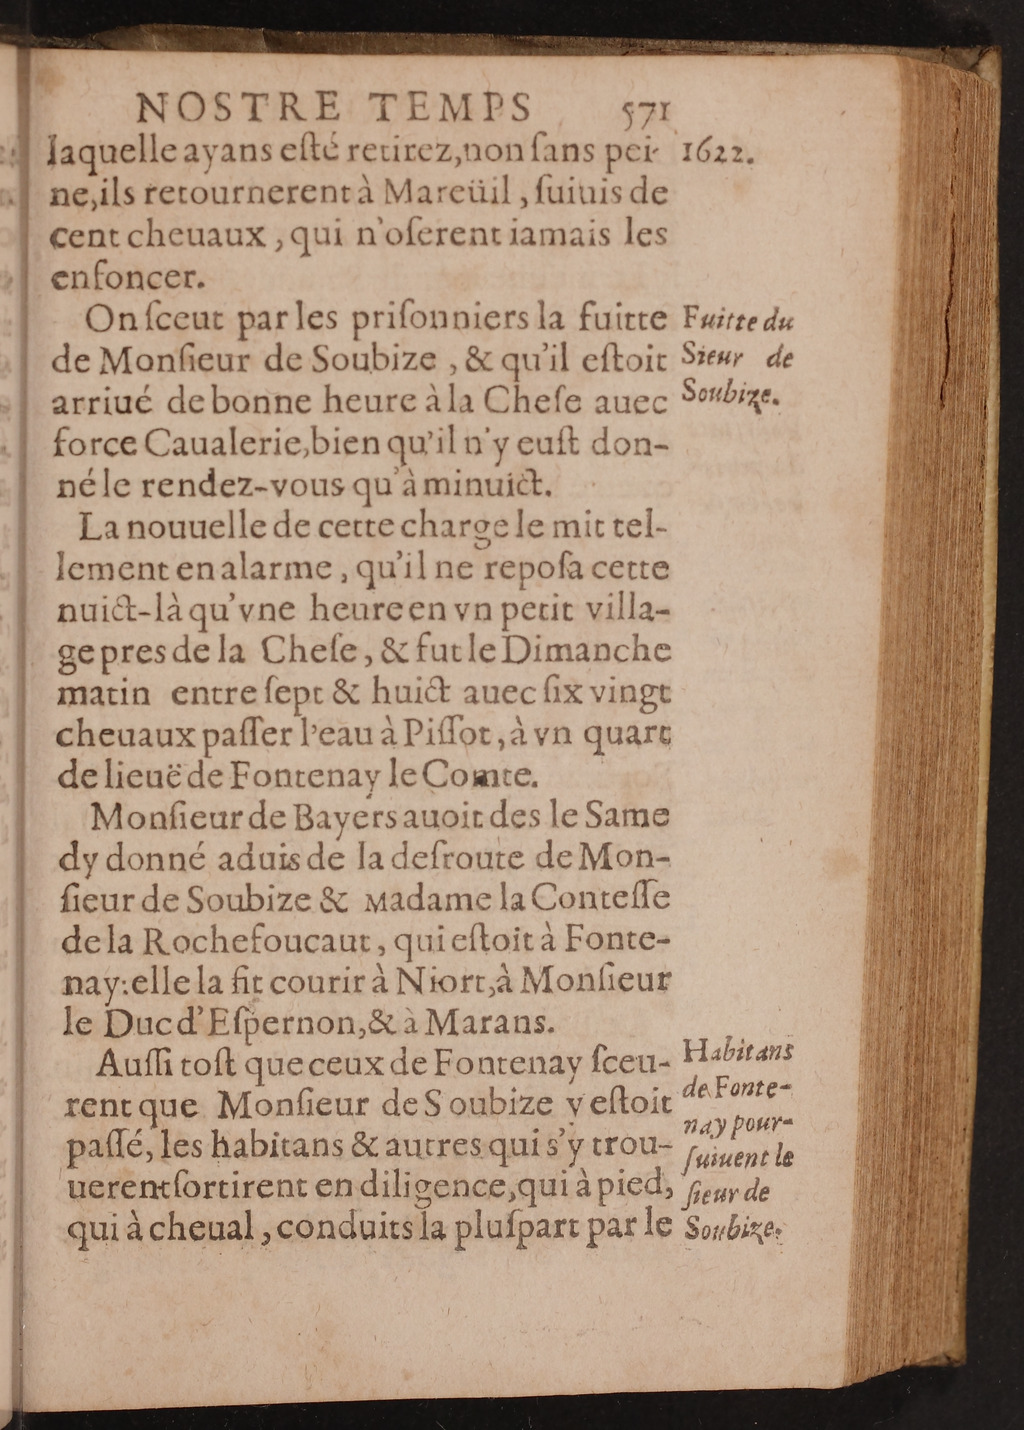 NOSTRE TEMPS 571
laquelle ayans esté retirez, non sans pei- 1622.
ne, ils retournerent à Mareüil, suiuis de
cent cheuaux, qui n'oserent iamais les
enfoncer.
On sceut par les prisonniers la fuitte
de Monsieur de Soubize, & qu'il estoit
arriué de bonne heure à la Chese auec
force Caualerie, bien qu'il n'y eust don-
né le rendez-vous qu'à minuict.
Fuitte du
Sieur de
Soubize.
La nouuelle de cette charge le mit tel-
lement en alarme, qu'il ne reposa cette
nuict-là qu'vne heure en vn petit villa-
ge pres de la Chese, & fut le Dimanche
matin entre sept & huict auec six vingt
cheuaux passer l'eau à Pissot, à vn quart
de lieuë de Fontenay le Comte.
Monsieur de Bayers auoit des le Same
dy donné aduis de la defroute de Mon-
sieur de Soubize & Madame la Contesse
de la Rochefoucaut, qui estoit à Fonte-
nay: elle la fit courir à Niort, à Monsieur
le Duc d'Espernon, & à Marans.
Aussi tost que ceux de Fontenay sceu-
rent que Monsieur de Soubize y estoit
passé, les habitans & autres qui s'y trou-
uerent sortirent en diligence, qui à pied,
qui à cheual, conduits la pluspart par le
Habitans
de Fonte-
nay pour-
suiuent le
sieur de
Soubize.